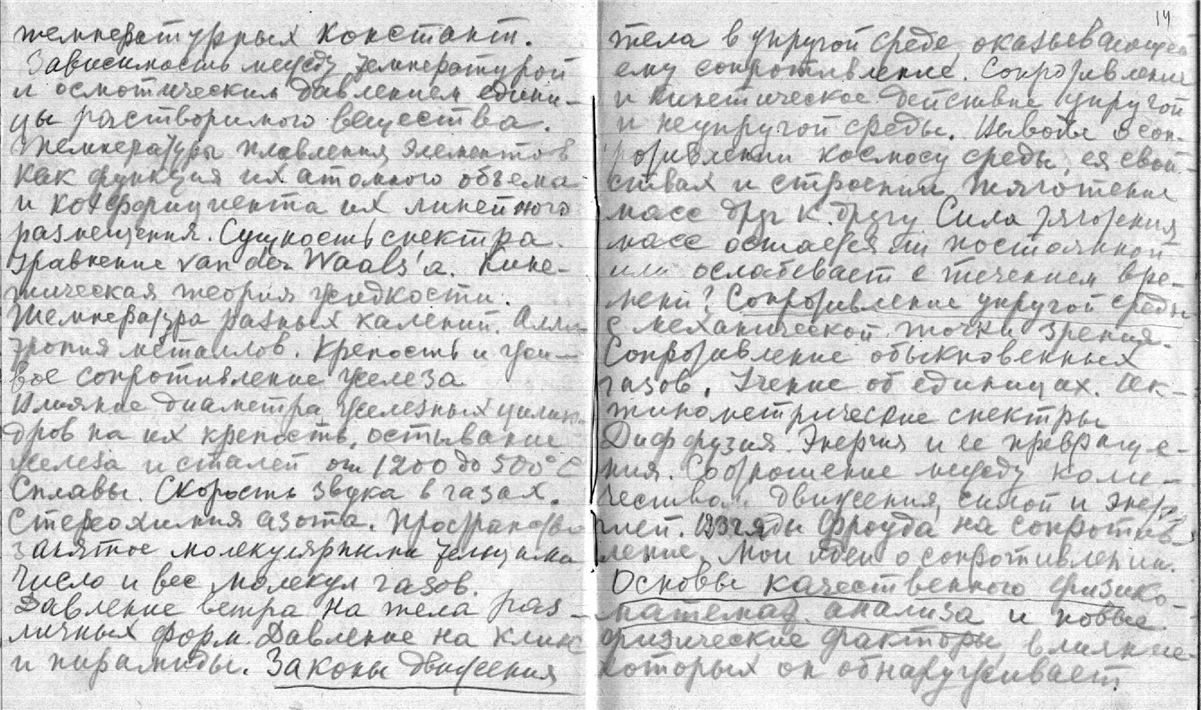 температурных констант.
Зависимость между температурой
и осмотическим давлением едини-
цы растворимого вещества.
Температуры плавления элементов
как функция их атомного объема
и коэффициента их линейного
размещения. Сущность спектра.
Уравнение van der Waals'а. Кине-
тическая теория жидкости.
Температура разных калений. Алло
тропия металлов. Крепость и жи-
вое сопротивление железа
Влияние диаметра железных цилин-
дров на их крепость, остывание
железа и сталей от 1200 до 500° С
Сплавы. Скорость звука в газах.
Стереохимия азота. Пространство
занятое молекулярными частицами
Число и вес молекул газов.
Давление ветра на тела раз-
личных форм. Давление на клин
и пирамиды. Законы движения
14
тела в упругой среде оказывающей
ему сопротивление. Сопротивление
и кинетическое действие упругой
и неупругой среды. Выводы о соп-
ротивлении космосу среды, ея свой-
ствах и строении. Тяготение
масс друг к другу Сила тяготения
масс остается ли постоянной
или ослабевает с течением вре-
мени? Сопротивление упругой среды
с механической точки зрения.
Сопротивление обыкновенных
газов. Учение об единицах. Ак-
тинометрические спектры
Диффузия. Энергия и ее превраще-
ния. Соотношение между коли-
чеством движения, силой и энер-
гией. Взгляды Фроуда на сопротив-
ление. Мои идеи о сопротивлении.
Основы качественного физико-
математ. анализа и новые
физические факторы влияние
которых он обнаруживает